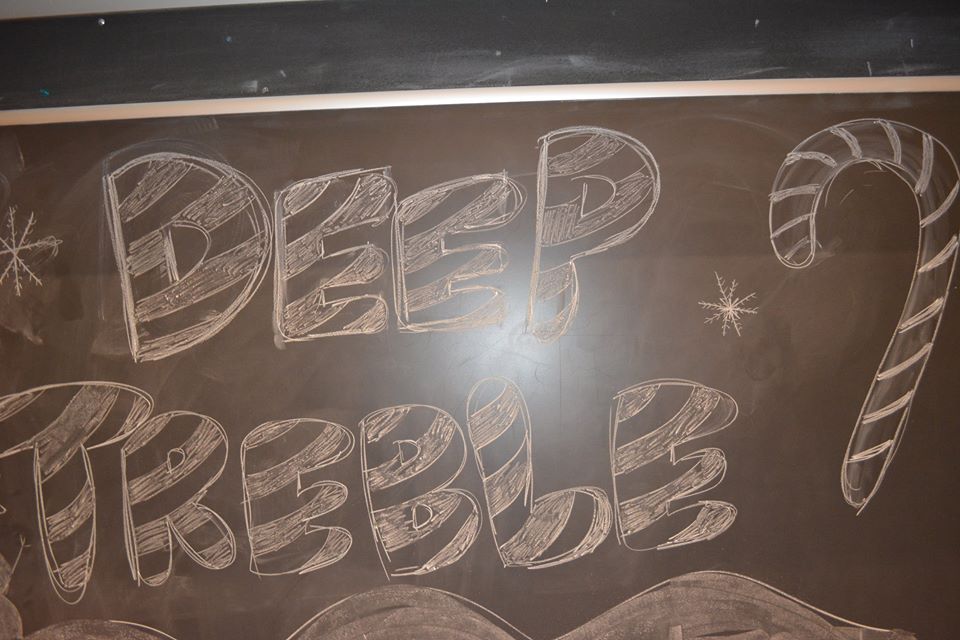 DEEP
TREBLE